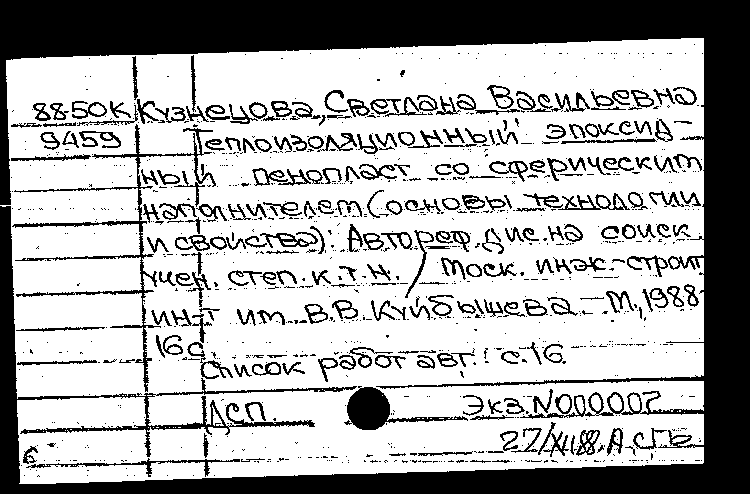 88-50К Кузнецова, Светлана Васильевна
9459 Теплоизоляционный эпоксид-
ный пенопласт со сферическим
наполнителем (основы технологии
и свойства): Автореф. дис. на соиск.
учен. степ. к.т.н. / Моск. инж.-строит
ин-т им. В.В. Куйбышева. - М., 1988-
16 с.
Список работ авт.: с. 16.
ДСП. Экз. N000007
27/XII88.